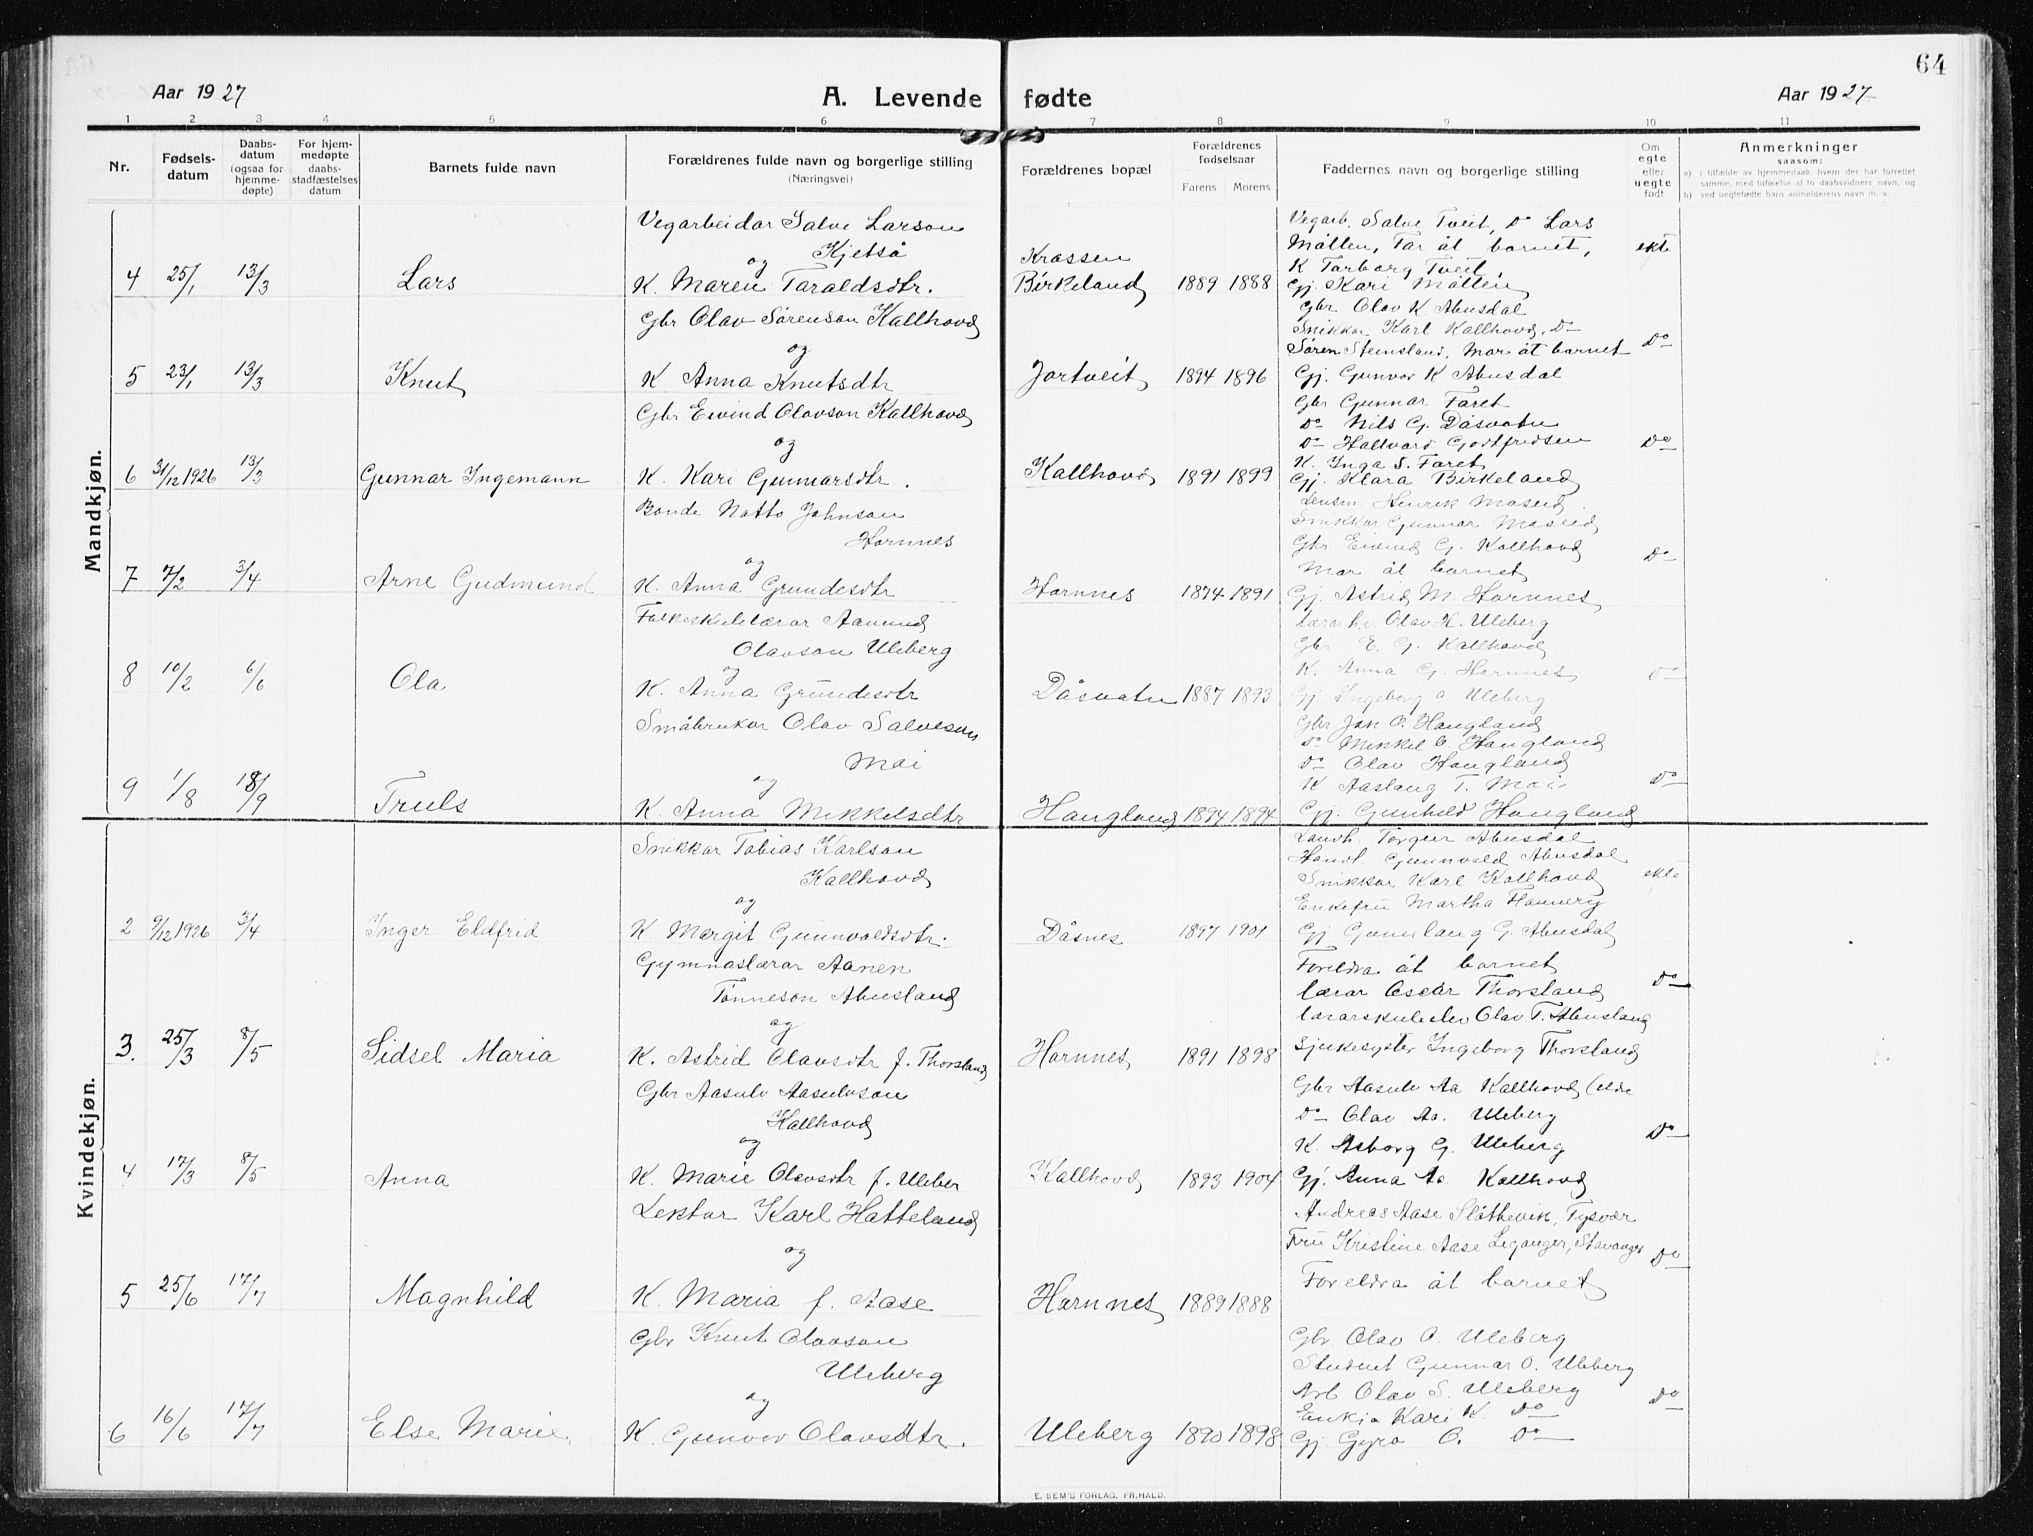 64
Aar 1927 A. Levende fødte Aar 1927
1 2 3 4 5 6 7 8 9 10 11
Nr.
Fødsels-
datum
Daabs-
datum
(ogsaa for
hjemme-
døpte)
For hjem-
medøpte
daabs-
stadfæstelses
datum
Barnets fulde navn
Forældrenes fulde navn og borgerlige stilling
(Næringsvei)
Forældrenes bopæl
Forældrenes
fødselsaar
Farens Morens
Faddernes navn og borgerlige stilling
Om
egte
eller
uegte
født
Anmerkninger
saasom:
a) i tilfælde av hjemmedaab, hvem der har forrettet
samme, med tilføielse af to daabsvidners navn, og
b) ved uegtefødte barn anmelderens navn m. v.
Mandkjøn.
4 25/1 13/3 Lars
Vegarbeidar Salve Larson
Kjetså
og
K. Maren Taraldsdtr.
Krossen
Birkeland 1889 1888
Vegarb. Salve Tveit, Do Lars
Mållen, Far åt barnet,
K Torborg Tveit,
Gj. Kari Mållen
ekte
5 23/1 13/3 Knut
Gbr Olav Sørenson Kallhovd
og
K Anna Knutsdtr
Jortveit 1894 1896
Gbr Olav K Abusdal
Snikkar Karl Kallhovd, Do
Søren Steinsland, Mor åt barnet
Gj. Gunvor K Abusdal
Do
6 31/12 1926 13/3 Gunnar Ingemann
Gbr Eivind Olavson Kallhovd
og
K. Kari Gunnarsdtr.
Kallhovd 1891 1899
Gbr Gunnar Faret
Do Nils G. Dåsvatn
Do Hallvard Godtfredsen
K. Inga S. Faret
Gj. Klara Birkeland
Do
7 7/2 3/4 Arne Gudmund
Bonde Notto Johnson
Hornnes
og
K. Anna Grundesdtr
Hornnes 1874 1891
Lensm. Henrik Moseid
Snikkar Gunnar Moseid
Gbr Eivind G. Kallhovd
Mor åt barnet
Gj. Astrid M Hornnes
Do
8 10/2 6/6 Ola
Folkeskulelærar Aamund
Olavson Uleberg
og
K. Anna Grundesdtr
Dåsvatn 1887 1893
Olav K. Uleberg
Gbr E. G. Kallhovd
K. Anna G. Hornnes
Gj Ingeborg O Uleberg
Do
9 1/8 18/9 Truls
Småbrukar Olav Salveson
Moi
og
K. Anna Mikkelsdtr
Haugland 1894 1894
Gbr Jon O. Haugland
Do Mikkel O Haugland
Do Olav Haugland
K Aaslaug T. Moi
Gj. Gunhild Haugland
Do
Kvindekjøn.
2 9/12 1926 3/4 Inger Eldfrid
Snikkar Tobias Karlson
Kallhovd
og
K Margit Gunnvaldsdtr.
Dåsnes 1897 1901
Landh. Torgeir Abusdal
Handl. Gunnvald Abusdal
Snikkar Karl Kallhovd
Enkefru Martha
Gj Gunnlaug G. Abusdal
ekte
3. 25/3 8/5 Sidsel Maria
Gymnaslærar Aanen
Tønneson Abusland
og
K. Astrid Olavsdtr f. Thorsland
Hornnes 1891 1898
Foreldra åt barnet
Lærar Oscar Thorsland
Lærarskuleelev Olav T. Abusland
Sjukesyster Ingeborg Thorsland
Do
4 17/3 8/5 Anna
Gbr Aasulv Aasulvson
Kallhovd
og
K. Marie Olavsdtr f. Uleber
Kallhovd 1893 1904
Gbr Aasulv Aa Kallhovd (elde
Do Olav Aa. Uleberg
K. Asborg G. Uleberg
Gj. Anna Aa Kallhovd
Do
5 25/6 17/7 Magnhild
Lektor Karl Hatteland
og
K. Maria f. Aase
Hornnes 1889 1888
Andreas Aase Slåttevik, Tysvær
Fru Kristine Aase Leganger, Stavanger
Foreldra åt barnet
Do
6 16/6 17/7 Else Marie
Gbr Knut Olavson
Uleberg
og
K. Gunvor Olavsdtr.
Uleberg 1890 1898
Gbr. Olav O. Uleberg
Student Gunnar O. Uleberg
Arb Olav S. Uleberg
Enkja Kari K. Do
Gj Gyro O. Do
Do
E. SEM'S FORLAG, FR.HALD.